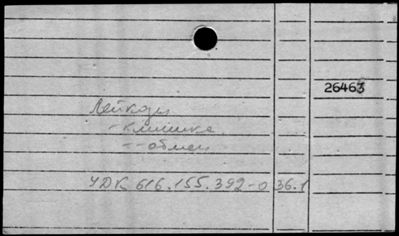 26463
Лейкозы
- клиника
-- обмен
УДК 616.155.392-036.1